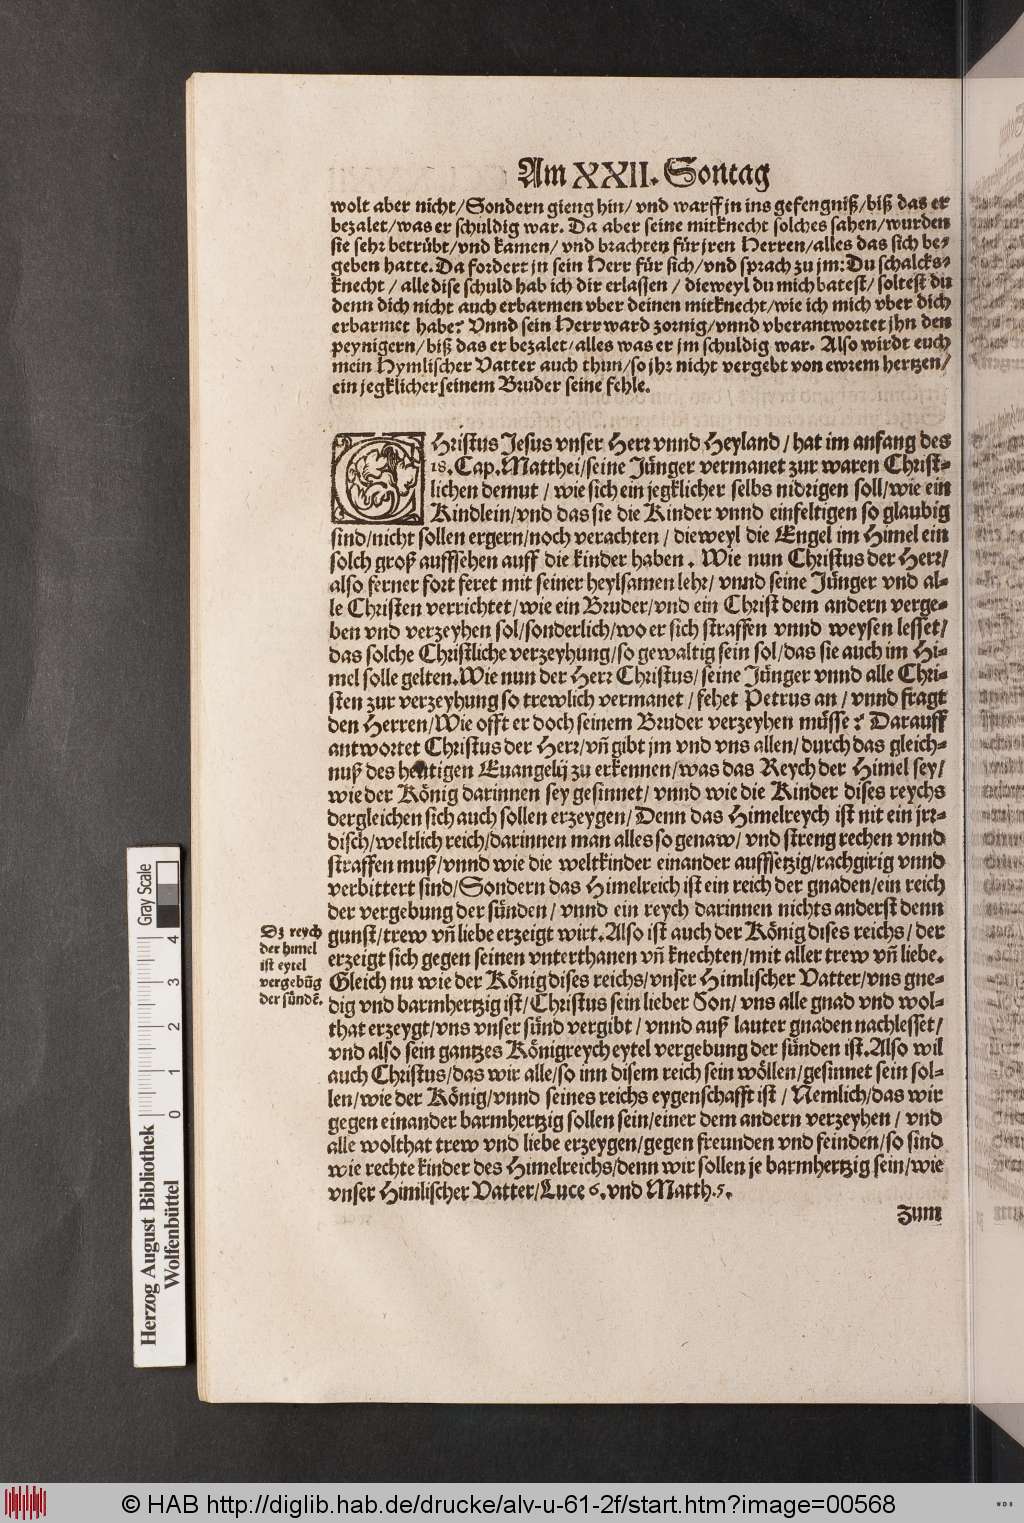 Am XXII. Sontag
wolt aber nicht/Sondern gieng hin/ vnd warff jn ins gefengniß/biß das er
bezalet/was er schuldig war. Da aber seine mitknecht solches sahen/wurden
sie sehr betrübt/vnd kamen/ vnd brachten für jren Herren/alles das sich be-
geben hatte. Da fordert jn sein Herr für sich/vnd sprach zu jm: Du schalcks-
knecht / alle dise schuld hab ich dir erlassen / dieweyl du mich batest/ soltest du
denn dich nicht auch erbarmen vber deinen mitknecht/wie ich mich vber dich
erbarmet habe? Vnnd sein Herr ward zornig/vnnd vberantwortet jhn den
peynigern/biß das er bezalet/alles was er jm schuldig war. Also wirdt euch
mein Hymlischer Vatter auch thun/so jhr nicht vergebt von ewrem hertzen/
ein jegklicher seinem Bruder seine fehle.
CHristus Jesus vnser Herr vnnd Heyland / hat im anfang des
18. Cap. Matthei/seine Jünger vermanet zur waren Christ-
lichen demut / wie sich ein jegklicher selbs nidrigen soll/wie ein
Kindlein/vnd das sie die Kinder vnnd einfeltigen so glaubig
sind/nicht sollen ergern/noch verachten / dieweyl die Engel im Himel ein
solch groß auffsehen auff die kinder haben. Wie nun Christus der Herr/
also ferner fort feret mit seiner heylsamen lehr/ vnnd seine Jünger vnd al-
le Christen verrichtet/wie ein Bruder/vnd ein Christ dem andern verge-
ben vnd verzeyhen sol/sonderlich/wo er sich straffen vnnd weysen lesset/
das solche Christliche verzeyhung/so gewaltig sein sol/das sie auch im Hi-
mel solle gelten. Wie nun der Herr Christus/seine Jünger vnnd alle Chri-
sten zur verzeyhung so trewlich vermanet / fehet Petrus an / vnnd fragt
den Herren/Wie offt er doch seinem Bruder verzeyhen müsse? Darauff
antwortet Christus der Herr/vñ gibt jm vnd vns allen/durch das gleich-
nuß des heutigen Euangelij zu erkennen/was das Reych der Himel sey/
wie der König darinnen sey gesinnet/ vnnd wie die Kinder dises reychs
dergleichen sich auch sollen erzeygen/ Denn das Himelreych ist nit ein jrr-
disch/weltlich reich/darinnen man alles so genaw/ vnd streng rechen vnnd
straffen muß/vnnd wie die weltkinder einander auffsetzig/rachgirig vnnd
verbittert sind/Sondern das Himelreich ist ein reich der gnaden/ein reich
der vergebung der sünden / vnnd ein reych darinnen nichts anderst denn
gunst/trew vñ liebe erzeigt wirt. Also ist auch der König dises reichs/ der
erzeigt sich gegen seinen vnterthanen vñ knechten/mit aller trew vñ liebe.
Dz reych
der himel
ist eytel
vergebũg
der sündẽ.
Gleich nu wie der König dises reichs/vnser Himlischer Vatter/vns gne-
dig vnd barmhertzig ist/Christus sein lieber Son/ vns alle gnad vnd wol-
that erzeygt/vns vnser sünd vergibt / vnnd auß lauter gnaden nachlesset/
vnd also sein gantzes Königreych eytel vergebung der sünden ist. Also wil
auch Christus/das wir alle/so inn disem reich sein wöllen/gesinnet sein sol-
len/wie der König/vnnd seines reichs eygenschafft ist / Nemlich/das wir
gegen einander barmhertzig sollen sein/einer dem andern verzeyhen / vnd
alle wolthat trew vnd liebe erzeygen/gegen freunden vnd feinden/so sind
wie rechte kinder des Himelreichs/denn wir sollen je barmhertzig sein/wie
vnser Himlischer Vatter/Luce 6. vnd Matth. 5.
Zum
Herzog August Bibliothek
Wolfenbüttel
0 1 2 3 4
Gray Scale
© HAB http://diglib.hab.de/drucke/alv-u-61-2f/start.htm?image=00568